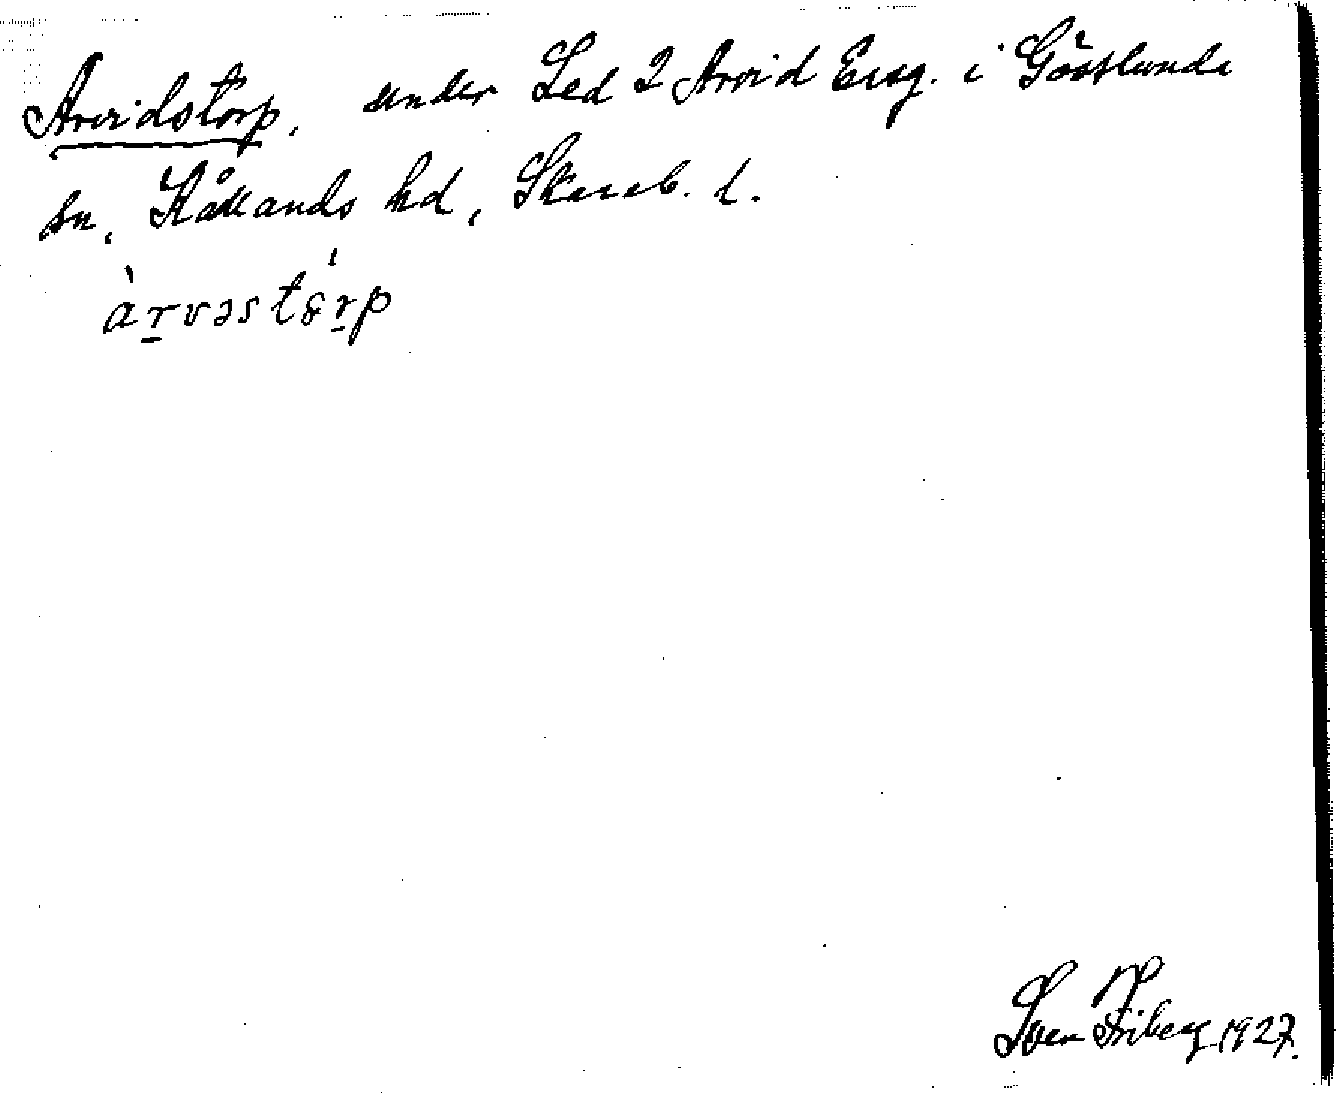 Arvidstorp, under Led 2 Arvid Ersg. i Götlunda
sn, Kåkinds hd, Skarab. l.
àrvəstɷ́rp
Sven Friberg 1927.